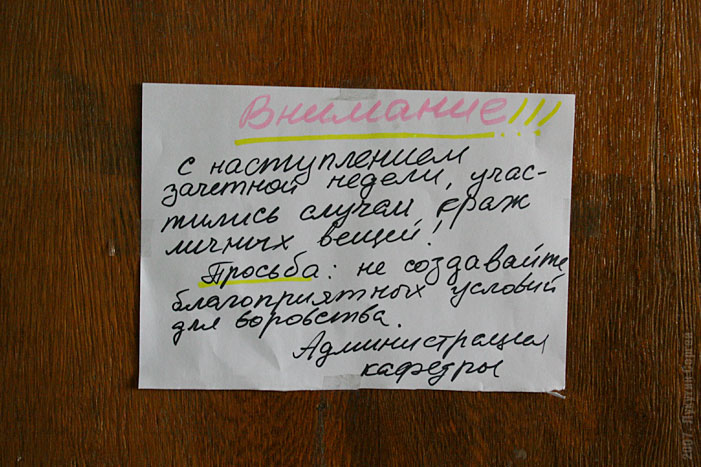 Внимание!!!
с наступлением
зачетной недели, учас-
тились случаи краж
личных вещей!
Просьба: не создавайте
благоприятных условий
для воровства.
Администрация
кафедры